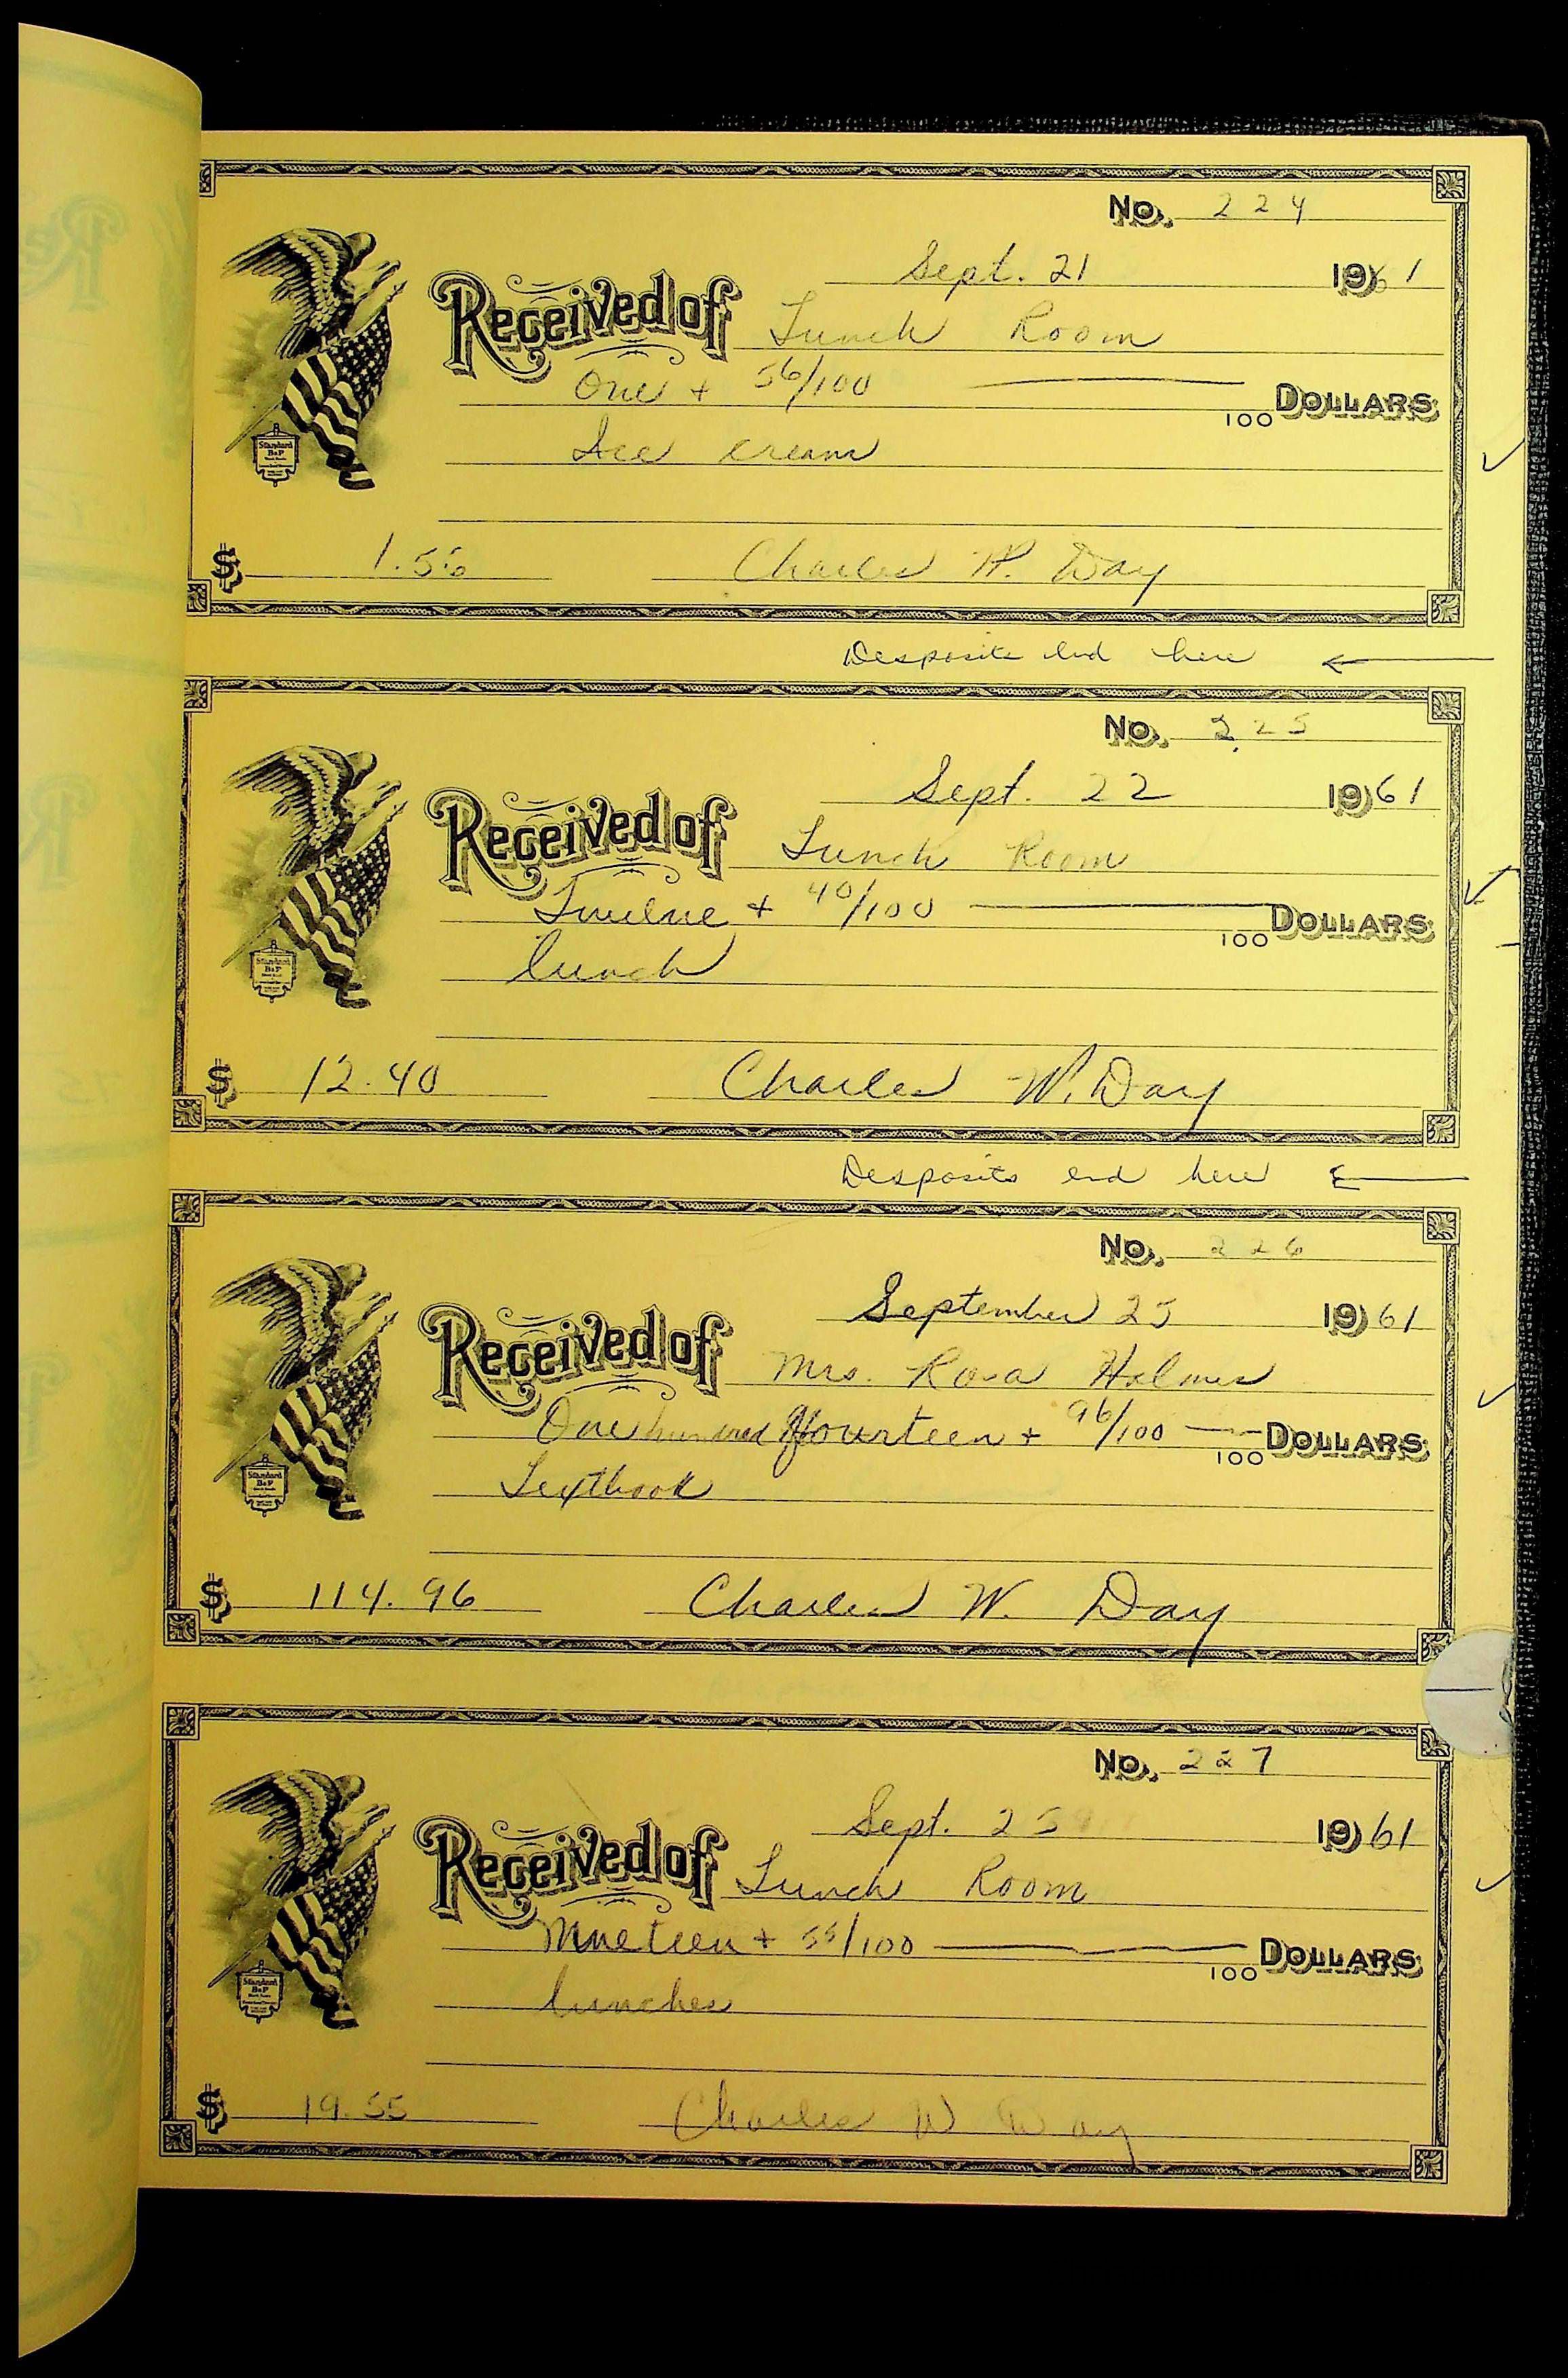 No. 224
Sept. 21 1961
Received of Lunch Room
One + 56/100 100 DOLLARS
Ice cream
Standard
B&P
$ 1.56 Charles W. Day
Desposits end here
No. 225
Sept. 22 1961
Received of Lunch Room
Twelve + 40/100 100 DOLLARS
lunch
Standard
B&P
$ 12.40 Charles W. Day
Desposits end here
No. 226
September 25 1961
Received of Mrs. Rosa Holmes
One hundred fourteen + 96/100 100 DOLLARS
Textbook
Standard
B&P
$ 114.96 Charles W. Day
No. 227
Sept. 25 1961
Received of Lunch Room
Nineteen + 55/100 100 DOLLARS
lunches
Standard
B&P
$ 19.55 Charles W Day